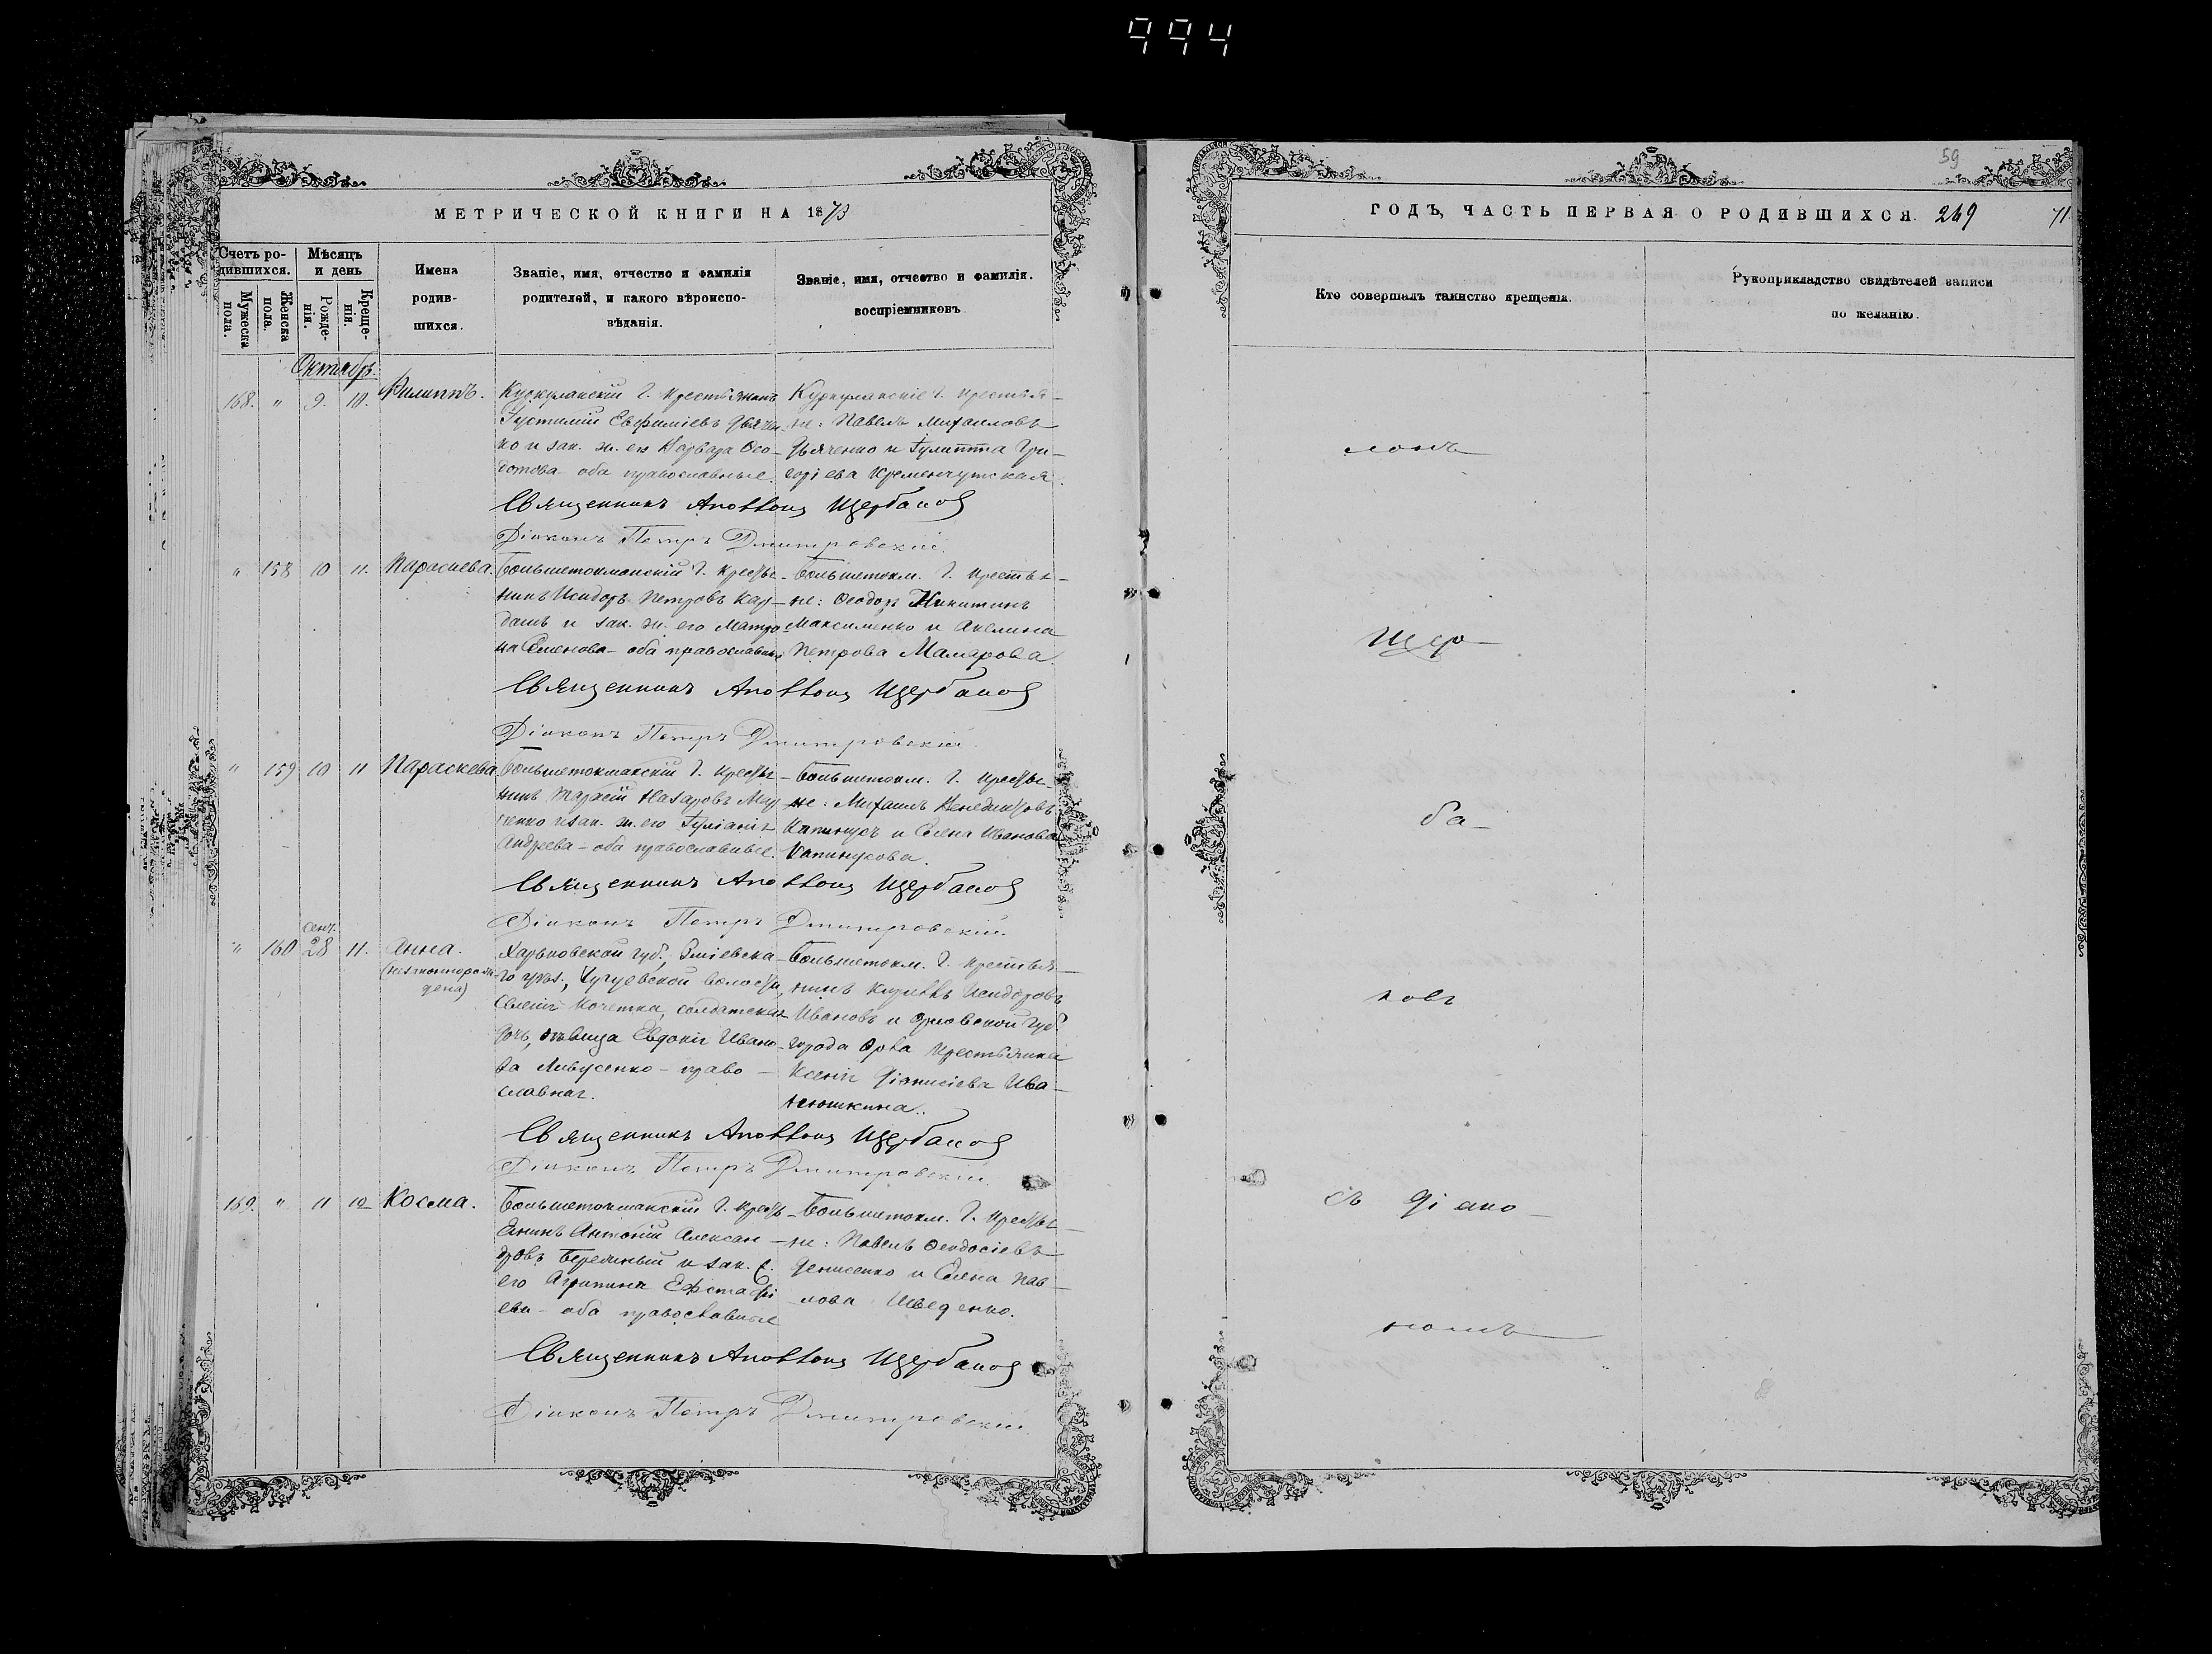 994
МЕТРИЧЕСКОЙ КНИГИ НА 1873
Счетъ ро-
дившихся.
Мѣсяцъ
и день
Мужеска
пола.
Женска
пола.
Рожде-
нія.
Креще-
нія.
Имена
родив-
шихся.
Званіе, имя, отчество и фамилія
родителей, и какого вѣроиспо-
вѣданія.
Званіе, имя, отчество и фамилія.
воспріемниковъ
Октябрь.
168. " 9. 10. Филиппъ.
Куркулакскій г. крестьянинъ
Іустиній Евфиміевъ Дьячен-
ко и зак. ж. его Варвара Ѳео-
дотова оба православные.
Куркулакскіе г. крестья-
не: Павелъ Михаиловъ
Дьяченко и Іулитта Гри-
горіева Кременчугская.
Священникъ Аполлонъ Щербаков
Діаконъ Петръ Дмитровскій.
" 158 10 11. Параскева.
Большетокмакскій г. кресть-
нинъ Исидоръ Петровъ Кар-
дашъ и зак. ж. его Матро-
на Семенова - оба православные
Большетокм. г. крестья-
не: Ѳеодоръ Никитинъ
Максименко и Акелина
Петрова Мамарова.
Священникъ Аполлонъ Щербаков
Діаконъ Петръ Дмитровскій
" 159 10 11 Параскева
Большетокмакскій г. крестья-
нинъ Тарасій Назаровъ
и зак. ж. его Іуліанія
Андреева - оба православные.
Большетокм. г. крестья-
не: Михаилъ Венедиктовъ
Капинусъ и Елена Иванова
Капинусова.
Священникъ Аполлонъ Щербаков
Діаконъ Петръ Дмитровскій.
Сент.
" 160 28 11. Анна.
(незаконнорож-
дена)
Харьковской губ., Зміевска-
го уѣз., Чугуевской волости,
селенія Кочетка, солдатская
дочь, дѣвица Евдокія Ивано-
ва Ливусенко - право-
славная.
Большетокм. г. крестья-
нинъ Кириллъ Исидоровъ
Ивановъ и Орловской губ.
города Орла крестьянка
Ксенія Діонисіева Ива-
нюшкина.
Священникъ Аполлонъ Щербаков
Діаконъ Петръ Дмитровскій.
169. " 11 12 Косма.
Большетокмакскій г. крестья-
нинъ Антоній Алексан-
дровъ и зак. ж.
его Агрипина Евстафі
ева - оба православные
Большетокм. г. крестья-
не: Павелъ Ѳеодосіевъ
Денисенко и Елена Пав-
лова Шведенко.
Священникъ Аполлонъ Щербаков
Діаконъ Петръ Дмитровскій.
59
ГОДЪ, ЧАСТЬ ПЕРВАЯ О РОДИВШИХСЯ. 269 71
Кто совершалъ таинство крещенія.
Рукоприкладство свидѣтелей записи
по желанію.
лонъ
Щер-
ба-
ковъ
съ діако-
номъ